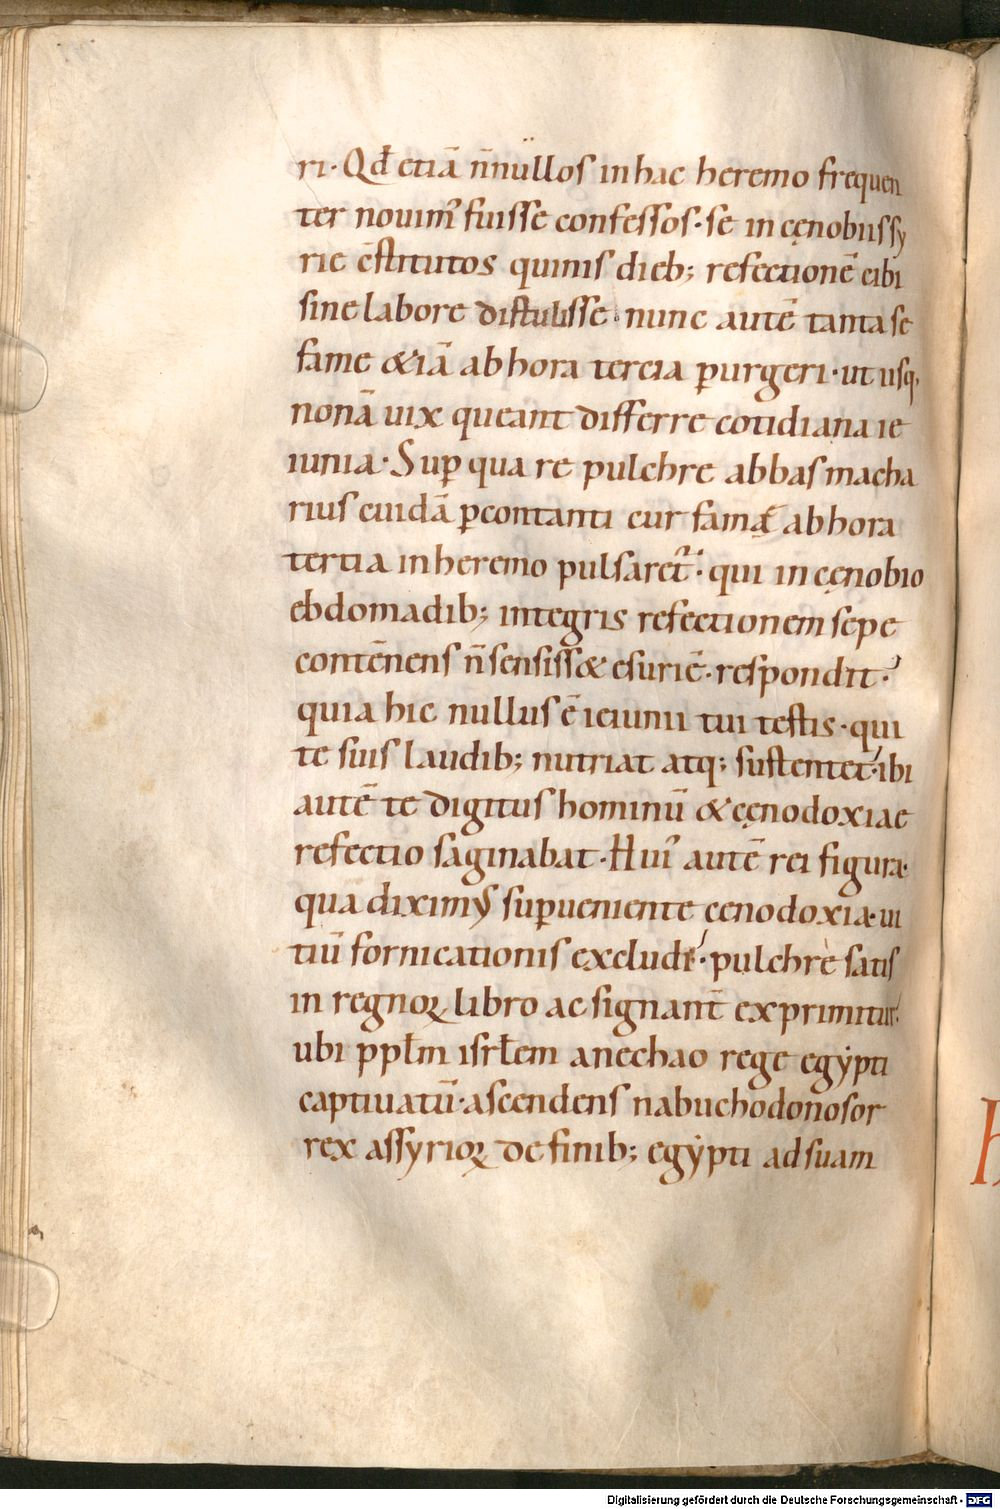 ri· Qđ etiā n̄nullos in hac heremo frequen
ter nouim᾽ fuisse confessos· se in cęnobiis sy
rie c̄stitutos quinis dieb; refectionē cibi
sine labore distulisse· nunc autē tanta se
fame &iā ab hora tercia ꝑurgeri· ut usq;
nonā uix queant differre cotidiana ie
iunia· Suꝑ qua re pulchre abbas macha
rius cuidā ꝑcontanti cur famę ab hora
tertia in heremo pulsaret᾽· qui in cęnobio
ebdomadib; integris refectionem sepe
contēnens n̄ sensiss& esuriē· respondit·
quia hic nullus ē ieiunii tui testis· qui
te suis laudib; nutriat atq; sustentet· ibi
autē te digitus hominū & cęnodoxiae
refectio saginabat· Hui᾽ autē rei figura·
qua diximus suꝑueniente cenodoxia· ui
tiū fornicationis excludi· pulchre satis
in regnoꝝ libro ac signant̄ exprimitur·
ubi ppl̄m isrl̄em a nechao rege egẏpti
captiuatū· ascendens nabuchodonosor
rex assyrioꝝ de finib; egẏpti ad suam
Digitalisierung gefördert durch die Deutsche Forschungsgemeinschaft - DFG